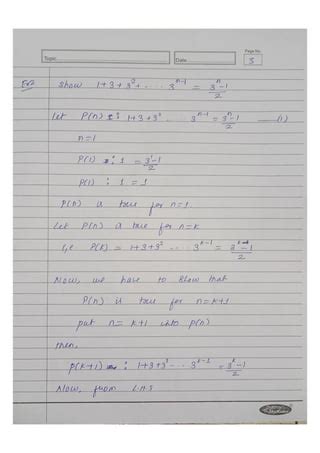 Page No.
Topic Date 3
Ex2 Show 1+3+3²+ ... 3ⁿ⁻¹ = 3ⁿ-1/2
let P(n) : 1+3+3² ... 3ⁿ⁻¹ = 3ⁿ-1/2 —(1)
n=1
P(1) : 1 = 3¹-1/2
P(1) : 1 = 1
P(n) is true for n=1.
Let P(n) is true for n=k
i,e P(k) = 1+3+3² ... 3ᵏ⁻¹ = 3ᵏ-1/2
Now, we have to show that
P(n) is true for n=k+1
put n= k+1 into p(n)
then,
P(k+1) : 1+3+3² ... 3ᵏ⁻¹ = 3ᵏ-1/2
Now, from L.H.S